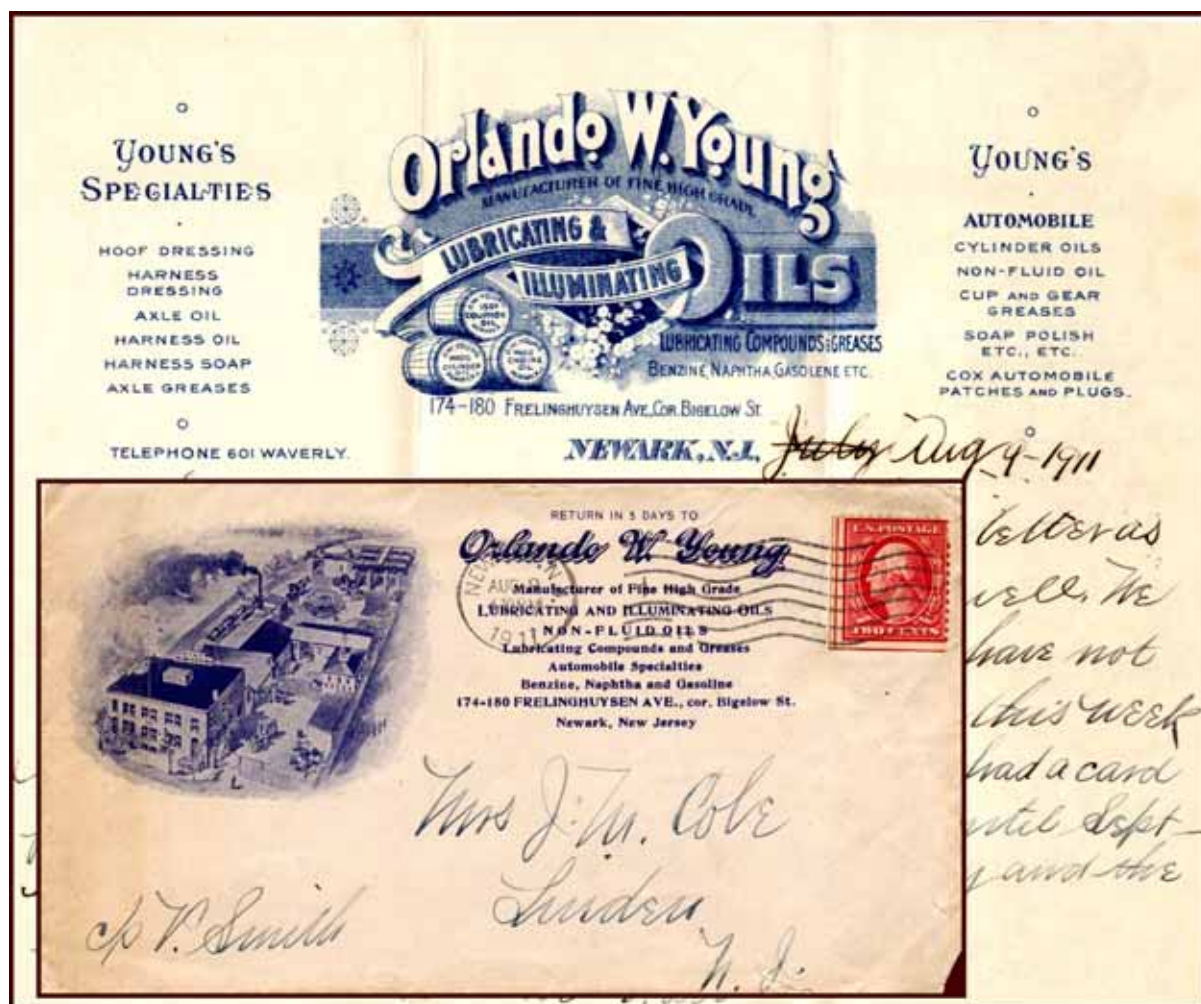 YOUNG'S
SPECIALTIES
HOOF DRESSING
HARNESS
DRESSING
AXLE OIL
HARNESS OIL
HARNESS SOAP
AXLE GREASES
TELEPHONE 601 WAVERLY.
Orlando W. Young
MANUFACTURER OF FINE HIGH GRADE
LUBRICATING &
ILLUMINATING
OILS
LUBRICATING COMPOUNDS & GREASES
BENZINE, NAPHTHA, GASOLENE ETC.
174-180 FRELINGHUYSEN AVE, COR. BIGELOW ST.
NEWARK, N.J. July Aug 9-1911
YOUNG'S
AUTOMOBILE
CYLINDER OILS
NON-FLUID OIL
CUP AND GEAR
GREASES
SOAP POLISH
ETC., ETC.
COX AUTOMOBILE
PATCHES AND PLUGS.
well. We
have not
this week
had a card
Sept-
and the
RETURN IN 5 DAYS TO
Orlando W. Young
Manufacturer of Fine High Grade
LUBRICATING AND ILLUMINATING OILS
NON-FLUID OILS
Lubricating Compounds and Greases
Automobile Specialties
Benzine, Naphtha and Gasoline
174-180 FRELINGHUYSEN AVE., cor. Bigelow St.
Newark, New Jersey
AUG 9
1911
U.S. POSTAGE
TWO CENTS
Mrs J. M. Cole
Linden
N. J.
c/o V. Smith